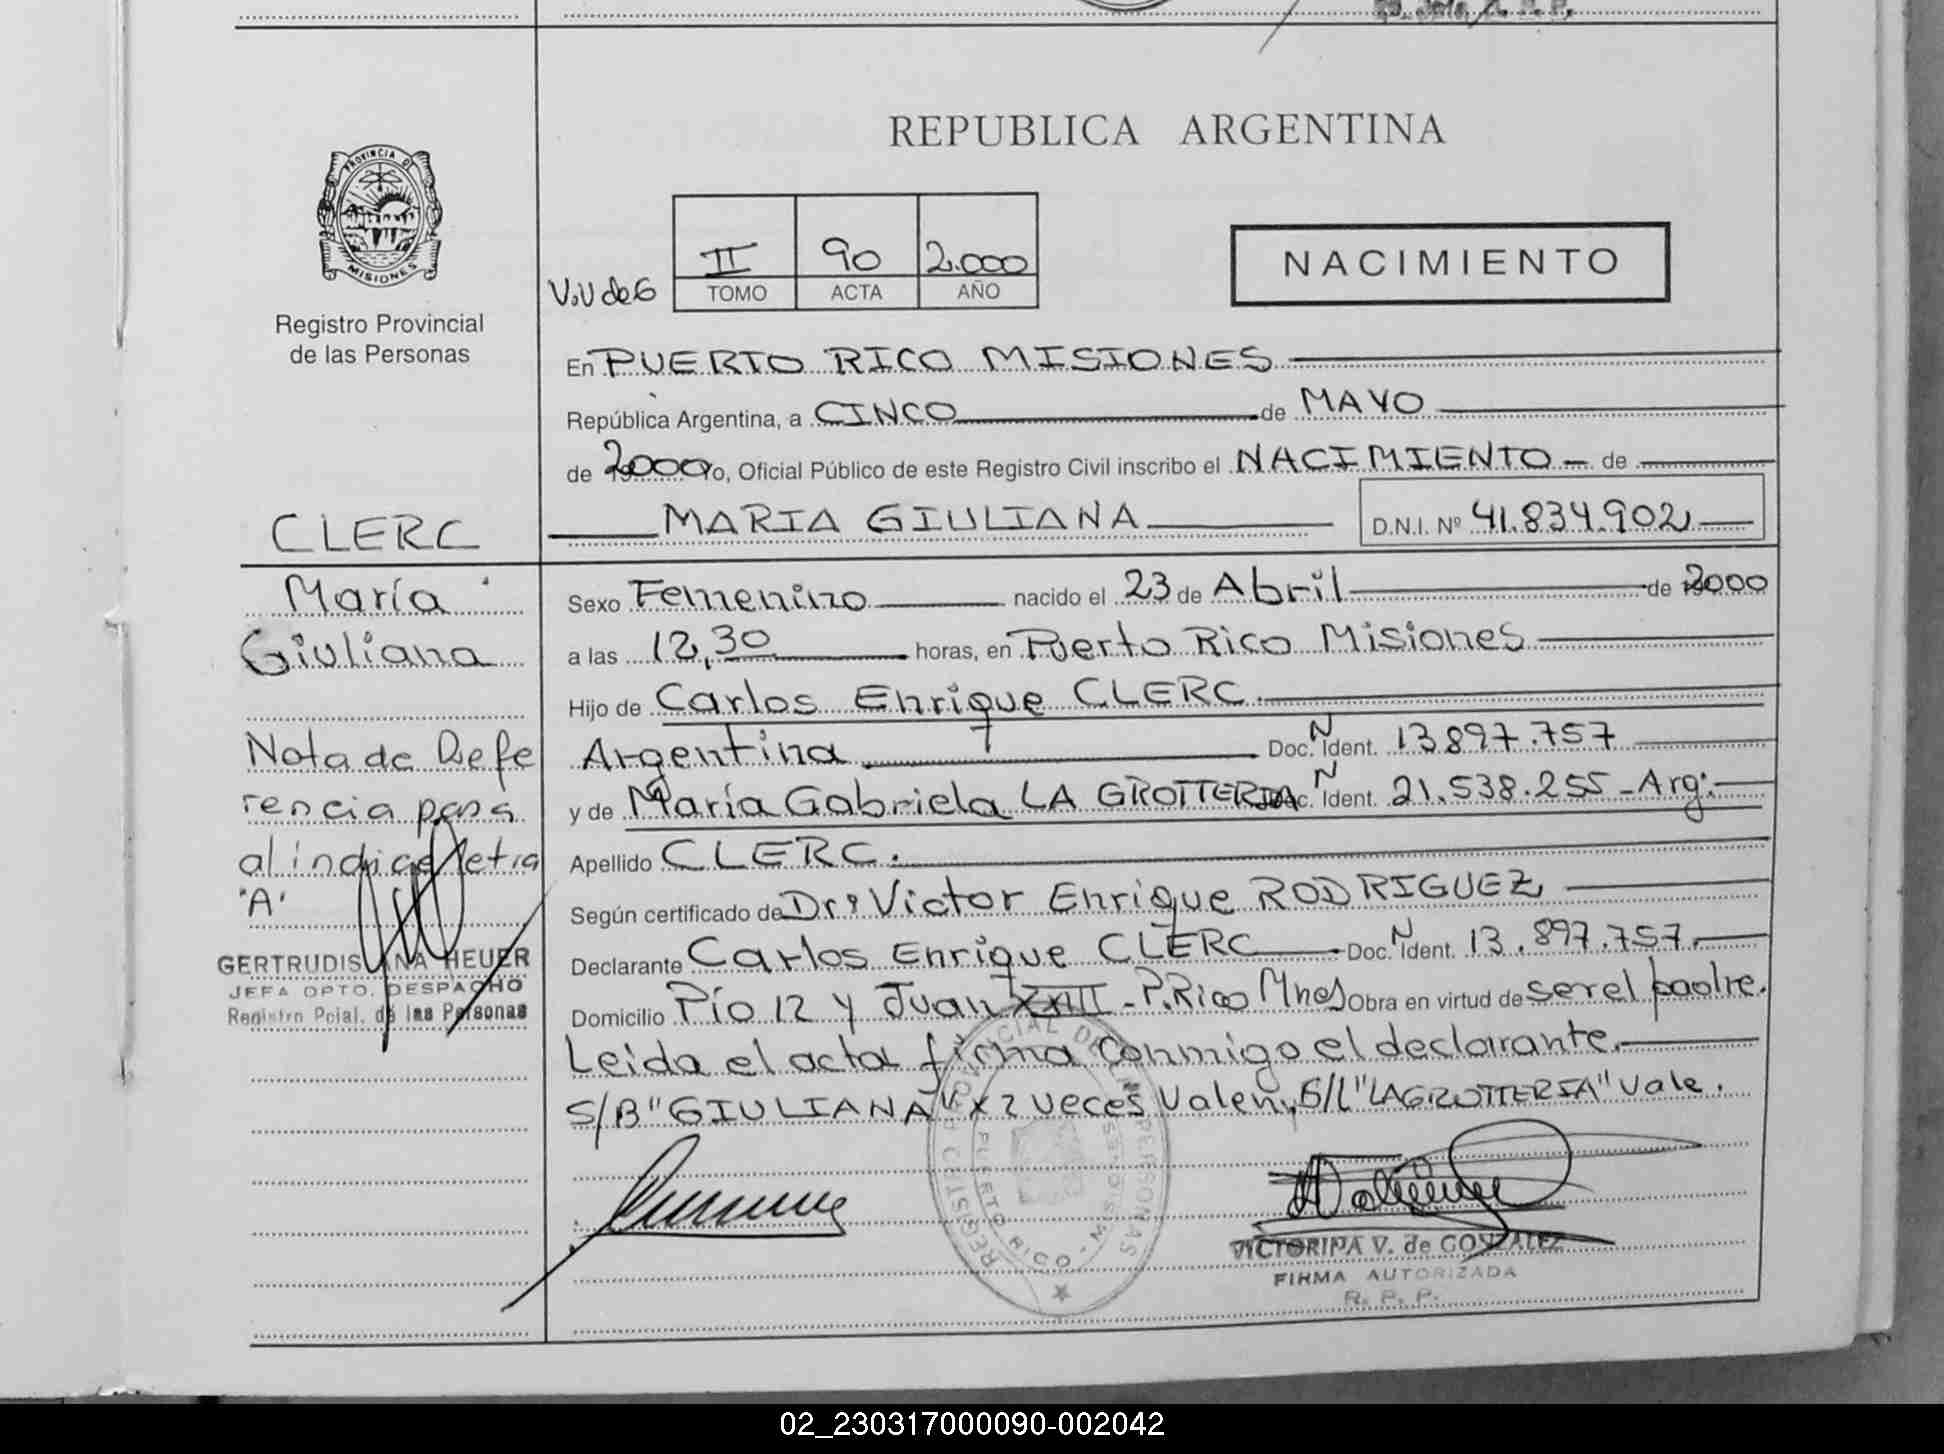 REPUBLICA ARGENTINA
PROVINCIA DE
MISIONES
Registro Provincial
de las Personas
V.V de G
II 90 2.000
TOMO ACTA AÑO
NACIMIENTO
En PUERTO RICO MISIONES
República Argentina, a CINCO de MAYO
de 2000 yo, Oficial Público de este Registro Civil inscribo el NACIMIENTO - de
MARIA GIULIANA D.N.I. Nº 41.834.902
CLERC
María
Giuliana
Nota de Refe
rencia pasa
al índice letra
"A"
GERTRUDIS ANA HEUER
JEFA DPTO. DESPACHO
Registro Pcial. de las Personas
Sexo Femenino nacido el 23 de Abril de 2000
a las 12,30 horas, en Puerto Rico Misiones
Hijo de Carlos Enrique CLERC.
Argentina Doc. N Ident. 13.897.757
y de María Gabriela LA GROTTERIA Doc. N Ident. 21.538.255 - Arg:
Apellido CLERC.
Según certificado de Dr: Victor Enrique RODRIGUEZ
Declarante Carlos Enrique CLERC Doc. N Ident. 13.897.757.
Domicilio Pío 12 y Juan XXIII - P. Rico Mnes Obra en virtud de ser el padre.
Leida el acta firma conmigo el declarante.
S/B "GIULIANA" x 2 veces Valen, E/L "LAGROTTERIA" Vale.
REGISTRO PROVINCIAL DE LAS PERSONAS
PUERTO RICO - MISIONES
VICTORINA V. de GONZALEZ
FIRMA AUTORIZADA
R. P. P.
02_230317000090-002042